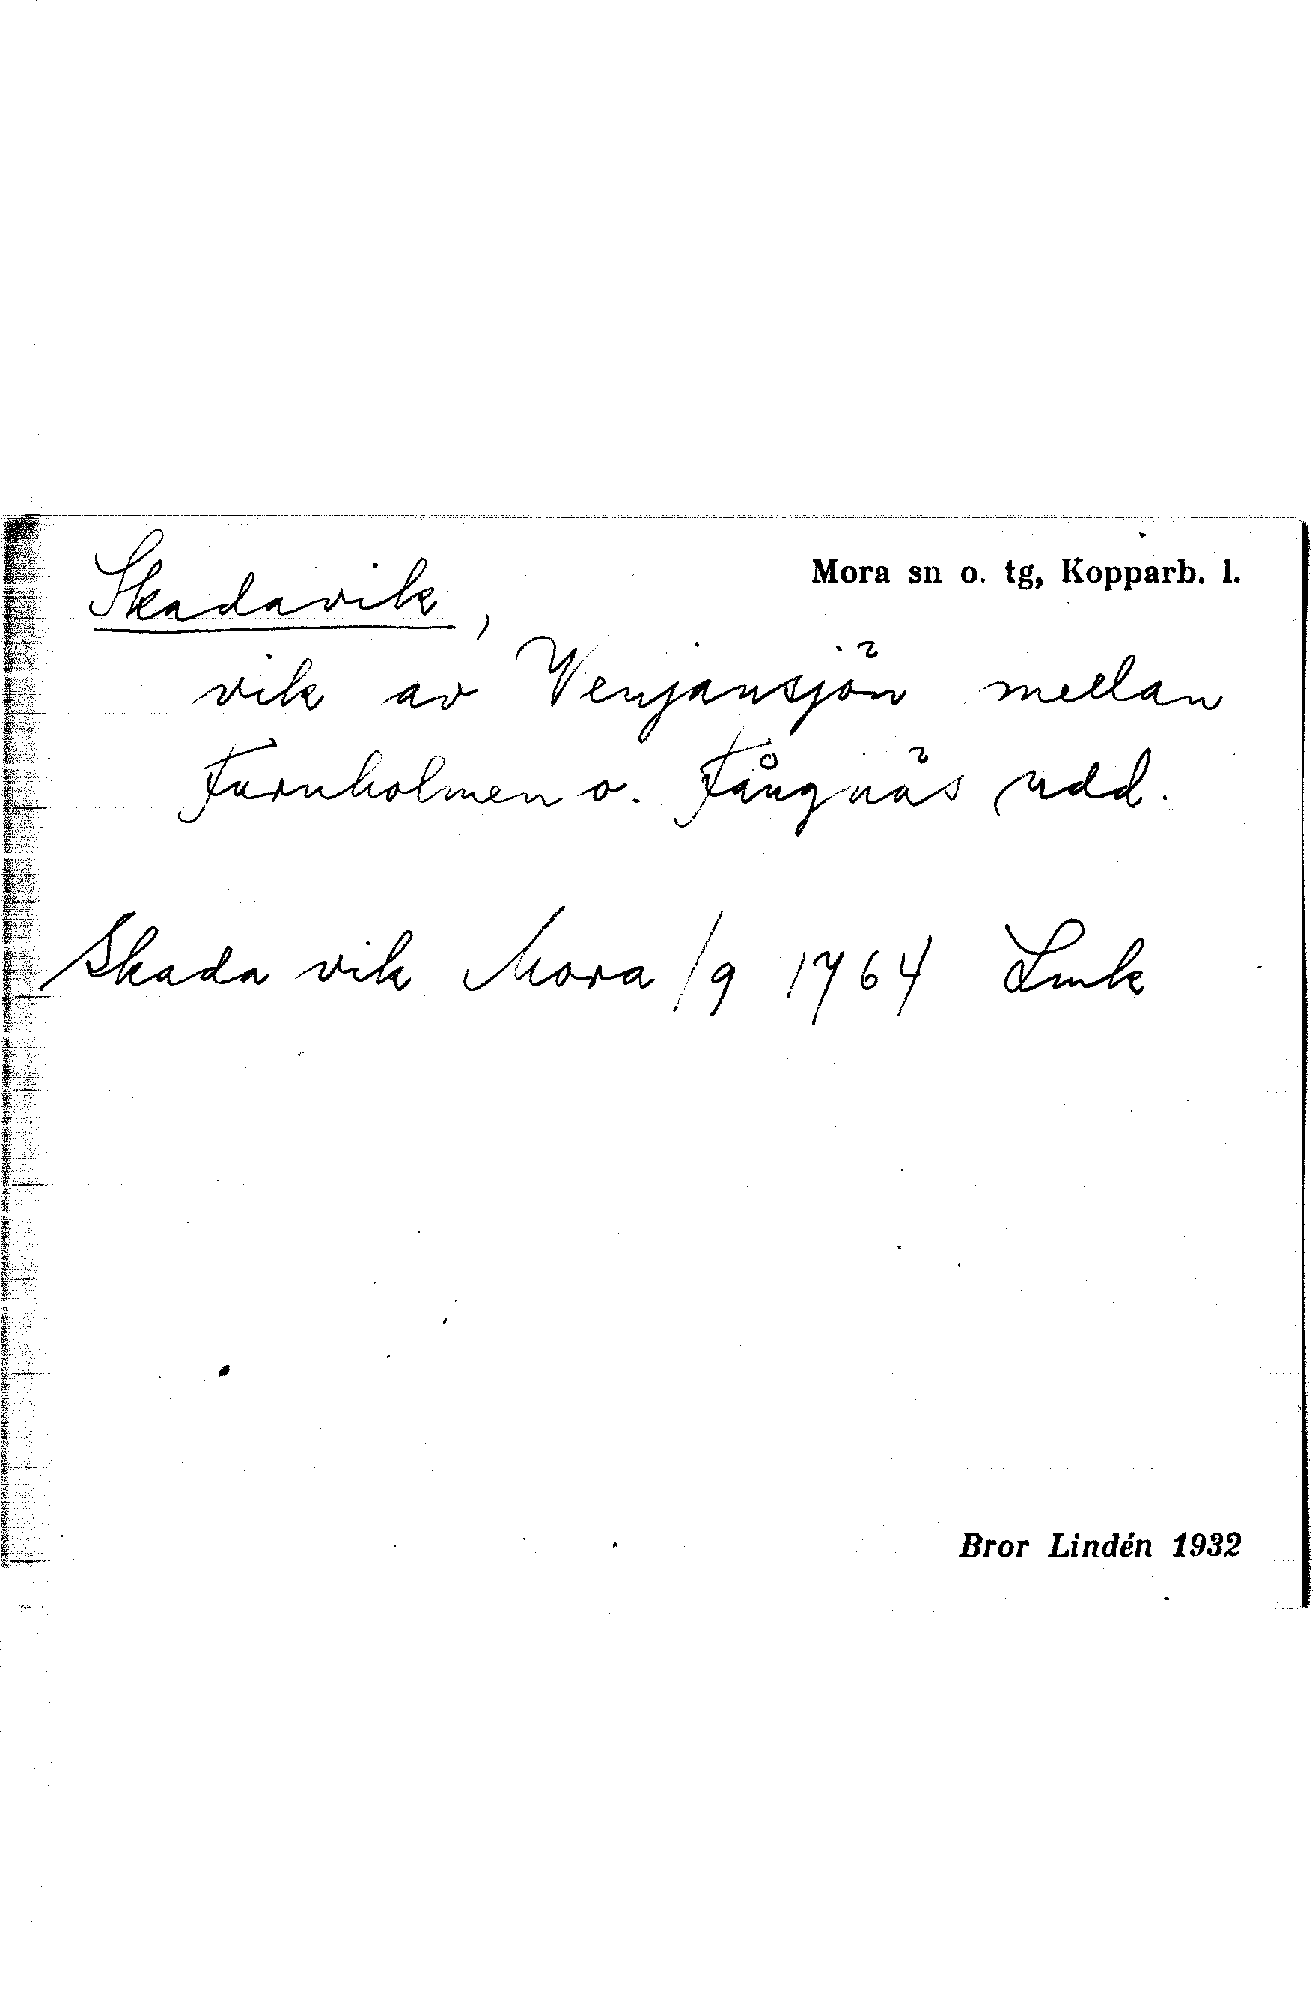 Mora sn o. tg, Kopparb. l.
Skadavik,
vik av Venjansjön mellan
Furnholmen o. Fångnäs udd.
Skada vik Mora /9 1764 Lmk
Bror Lindén 1932